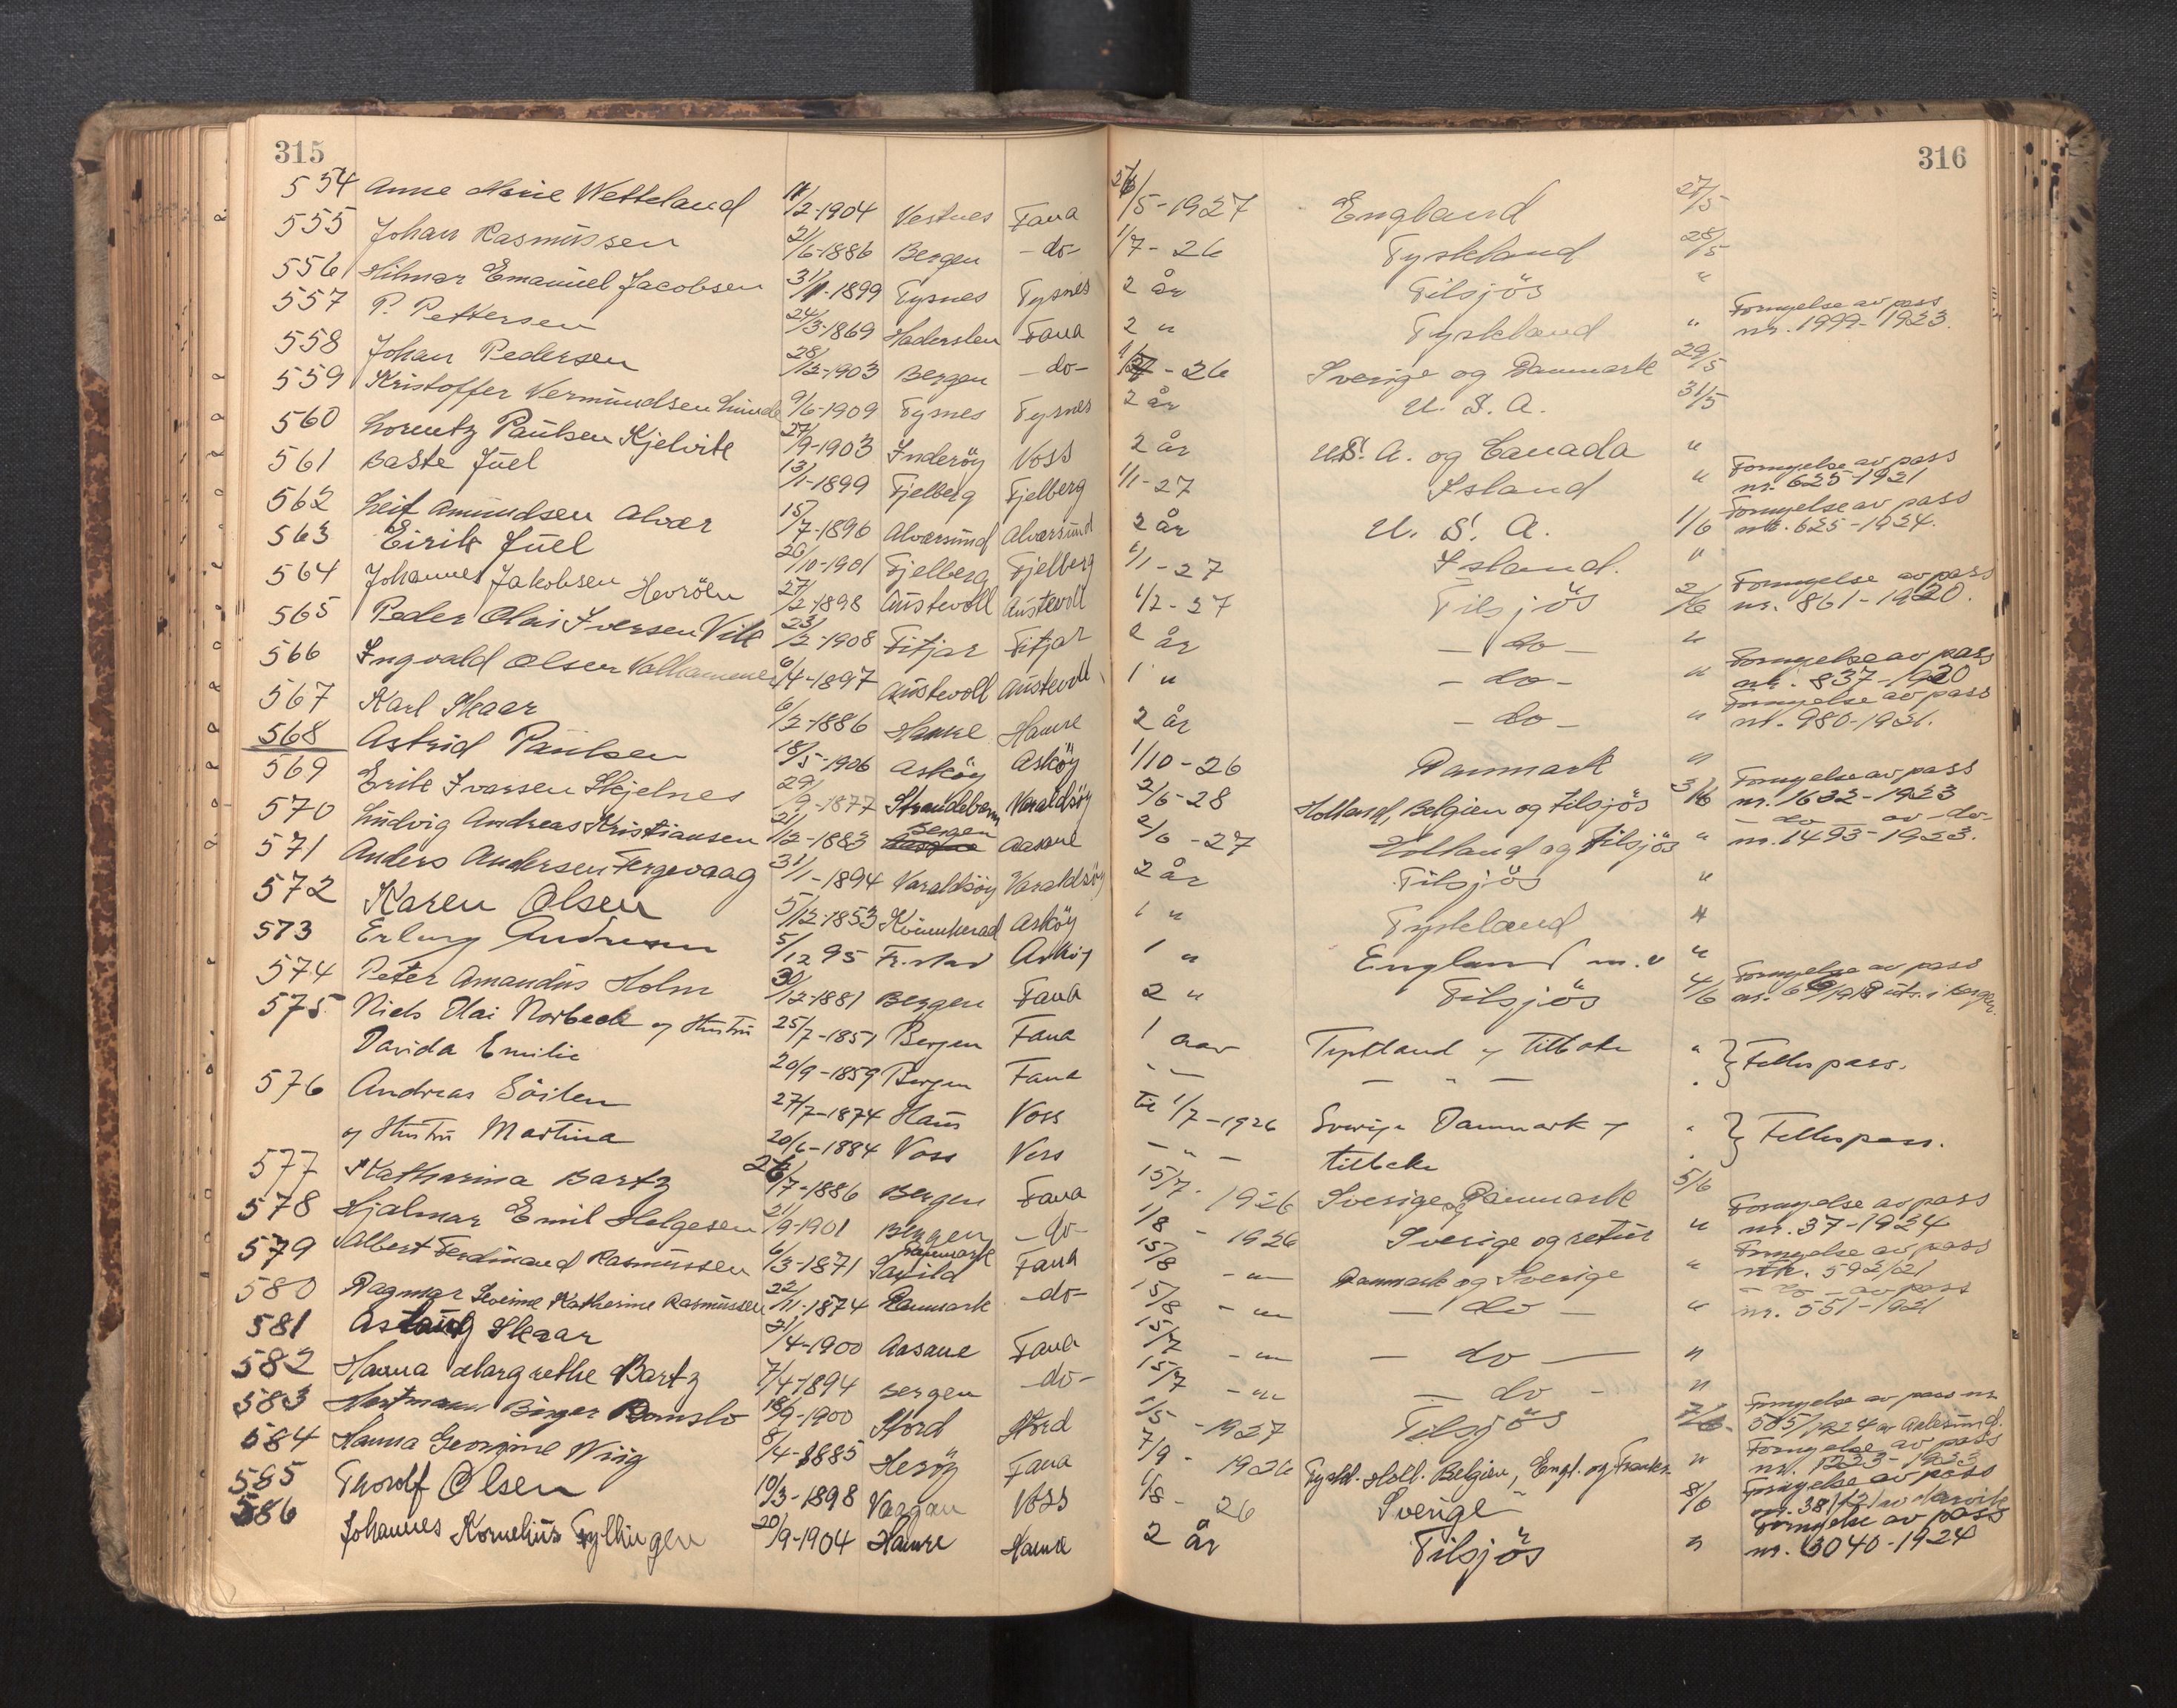 315 316
554 Anne Marie Wetteland 11/2-1904 Vestnes Fana /5-1927 England 27/5
555 Johan Rasmussen 21/6-1886 Bergen -do- 1/7-26 Tyskland 28/5
556 Hilmar Emanuel Jacobsen 31/1-1899 Tysnes Tysnes 2 år Tilsjös "
557 P. Pettersen 24/3-1869 Haderslen Fana 2 " Tyskland " Fornyelse av pass nr. 1999-1923.
558 Johan Pedersen 28/12-1903 Bergen -do- -26 Sverige og Danmark 29/5
559 Kristoffer Vermundsen Lunde 9/6-1909 Tysnes Tysnes 2 år U. S. A. 31/5
560 Lorentz Paulsen Kjelvik 27/9-1903 Inderöy Voss 2 år U.S. A. og Canada "
561 Baste Juel 13/1-1899 Fjelberg Fjelberg 1/1-27 Island " Fornyelse av pass nr. 625-1921
562 Leif Amundsen Alvær 15/7-1896 Alversund Alversund 2 år U. S. A. 1/6 Fornyelse av pass nr. 625-1924.
563 Eirik Juel 20/10-1901 Fjelberg Fjelberg 1/1-27 Island. "
564 Johannes Jakobsen Hevröen 27/2-1898 Austevoll Austevoll 1/2-27 Tilsjös 2/6 Fornyelse av pass nr. 861-1920.
565 Peder Olai Iversen Vik 23/2-1908 Fitjar Fitjar 2 år -do- "
566 Ingvald Olsen 6/4-1897 Austevoll Austevoll 1 " -do- " Fornyelse av pass nr. 837-1920
567 Karl Skaar 6/2-1886 Hamre Hamre 2 år -do- " Fornyelse av pass nr. 980-1921.
568 Astrid Paulsen 18/5-1906 Asköy Asköy 1/10-26 Danmark "
569 Erik Ivarsen Skjelnes 29/9-1877 Strandebarm Varaldsöy 2/6-28 Holland, Belgien og tilsjös 3/6 Fornyelse av pass nr. 1632-1923
570 Ludvig Andreas Kristiansen 21/12-1883 Bergen Aasane 2/6-27 Holland og tilsjös " -do- av -do- nr. 1493-1923.
571 Anders Andersen Fergevaag 31/1-1894 Varaldsöy Varaldsöy 2 år Tilsjös "
572 Karen Olsen 5/12-1853 Kvinnherad Asköy 1 " Tyskland "
573 Erling Andersen 5/12 95 Fr.stad Asköy 1 " England m.v "
574 Peter Amandus Holm 30/12-1881 Bergen Fana 2 " Tilsjös 4/6 Fornyelse av pass nr. /1918 uts. i Bergen.
575 Niels Olai Norbeck og Hustru 25/7-1857 Bergen Fana 1 aar Tyskland og tilbake " } Fellespass.
Davida Emilie 20/9-1859 Bergen Fana - " - - " - "
576 Andreas Söiten 27/7-1874 Haus Voss til 1/7-1926 Sverige Danmark og " } Fellespass.
og Hustru Martina 20/6-1884 Voss Voss - " - tilbake "
577 Katharina Bartz /7-1886 Bergen Fana 15/7-1926 Sverige og Danmark 5/6
578 Hjalmar Emil Helgesen 21/9-1901 Bergen -do- 1/8-1926 Sverige og retur " Fornyelse av pass nr. 37-1924
579 Albert Ferdinand Rasmussen 6/3-1871 Saxild Danmark Fana 15/8 - " - Danmark og Sverige " Fornyelse av pass nr. 592/21
580 Dagmar Katherine Rasmussen 22/11-1874 Danmark -do- 15/8 - " - -do- " -do- av pass nr. 551-1921
581 Aslaug Skaar 21/4-1900 Aasane Fana 15/7 - " - -do- "
582 Hanna Margrethe Bartz 7/4-1894 Bergen -do- 15/7 - " - -do- "
583 Hartmann Birger Romslo 18/9-1900 Stord Stord 1/5-1927 Tilsjös 7/6. Fornyelse av pass nr. 585/1924 av Aalesund.
584 Hanna Georgine Wiig 8/4-1885 Heröy Fana 7/9-1926 Tyskl. Holl. Belgien, Engl. og Frankr. " Fornyelse av pass nr. 1223-1923
585 Thorolf Olsen 10/3-1898 Voss 1/8-26 Sverige 8/6 Fornyelse av pass nr. 381/21 av Narvik
586 Johannes Kornelius Fyllingen 20/9-1904 Hamre Hamre 2 år Tilsjös " Fornyelse av pass nr. 3040-1924